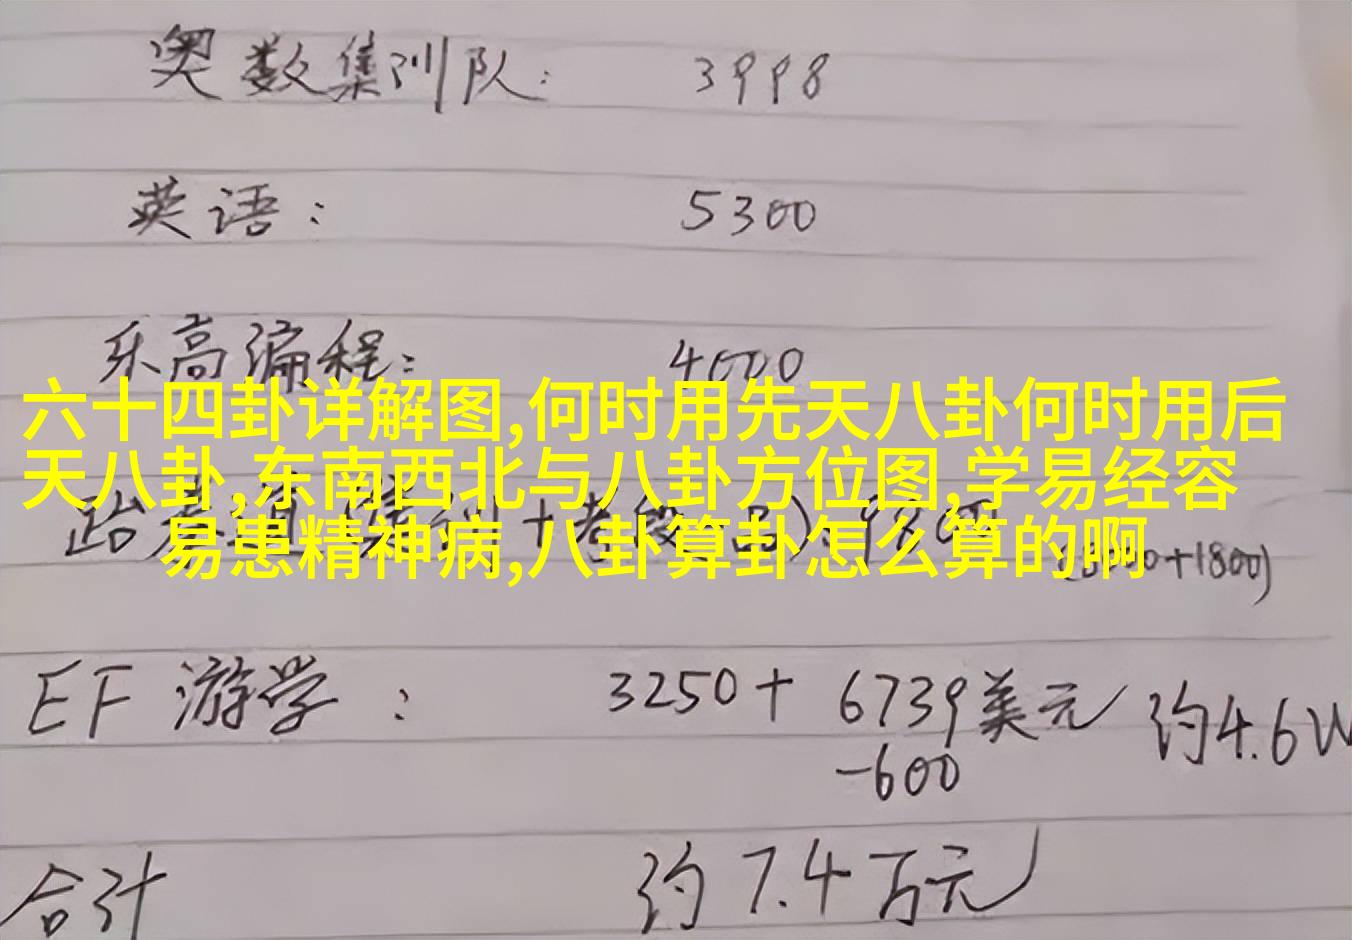 奥数集训队: 3998
英语: 5300
乐高编程: 4000
六十四卦详解图,何时用先天八卦何时用后
天八卦,东南西北与八卦方位图,学易经容
易患精神病,八卦算卦怎么算的啊
+1800)
EF 游学: 3250+ 6739美元 约4.6W
-600
合计 约7.4万元